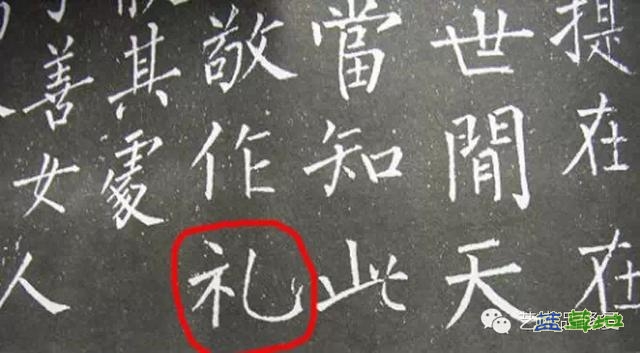 提在在
世閒天
當知此
敬作礼
散其處
善女人